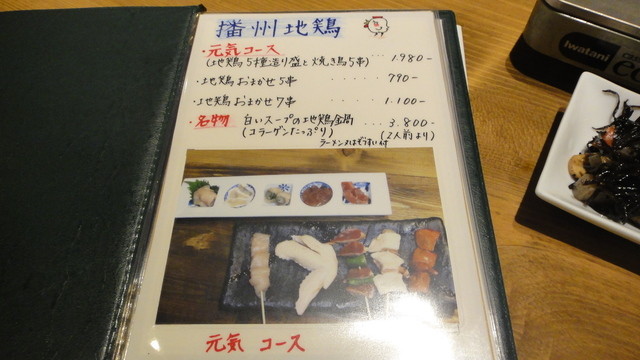 播州地鶏
・元気コース
(地鶏5種造り盛と焼き鳥5串) ・・・ 1.980-
・地鶏おまかせ5串 ・・・・・ 790-
・地鶏おまかせ7串 ・・・・ 1.100-
・名物 白いスープの地鶏鍋 ・・・ 3.800-
(コラーゲンたっぷり) (2人前より)
ラーメン又はぞうすい付
元気 コース
iwatani